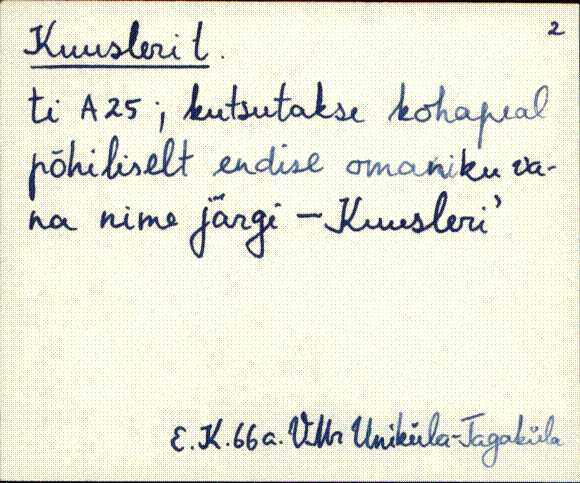 2
Kuusleri t.
ti A25; kutsutakse kohapeal
põhiliselt endise omaniku va-
na nime järgi – Kuusleri’
E.K. 66 a. VMr Uniküla-Tagaküla